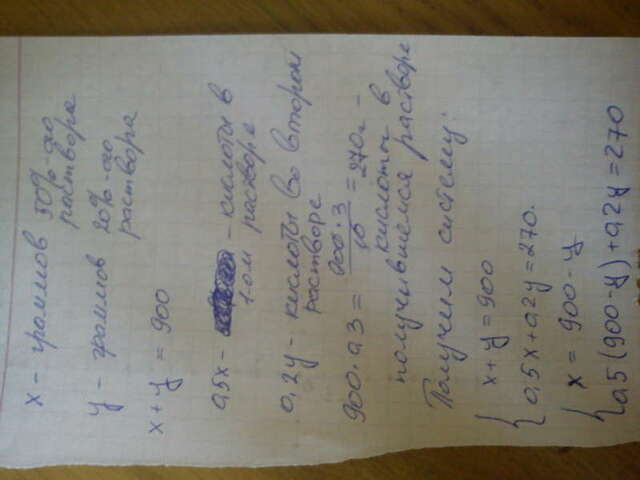 x - граммов 50%-го
раствора
y - граммов 20%-го
раствора
x + y = 900
0,5x - - кислоты в
1-ом растворе
0,2y - кислоты во втором
растворе
900·0,3 = 900·3/10 = 270г -
кислоты в
получившемся растворе
Получим систему:
{ x + y = 900
0,5x + 0,2y = 270.
{ x = 900 - y
0,5(900 - y) + 0,2y = 270